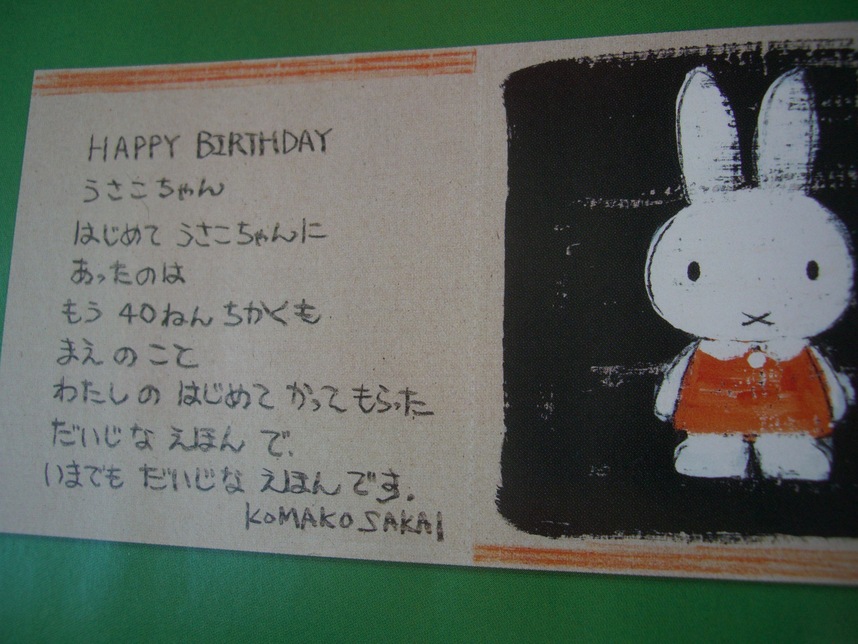 HAPPY BIRTHDAY
うさこちゃん
はじめて うさこちゃんに
あったのは
もう 40ねん ちかくも
まえ の こと
わたし の はじめて かって もらった
だいじ な えほん で、
いまでも だいじな えほん です.
KOMAKO SAKAI